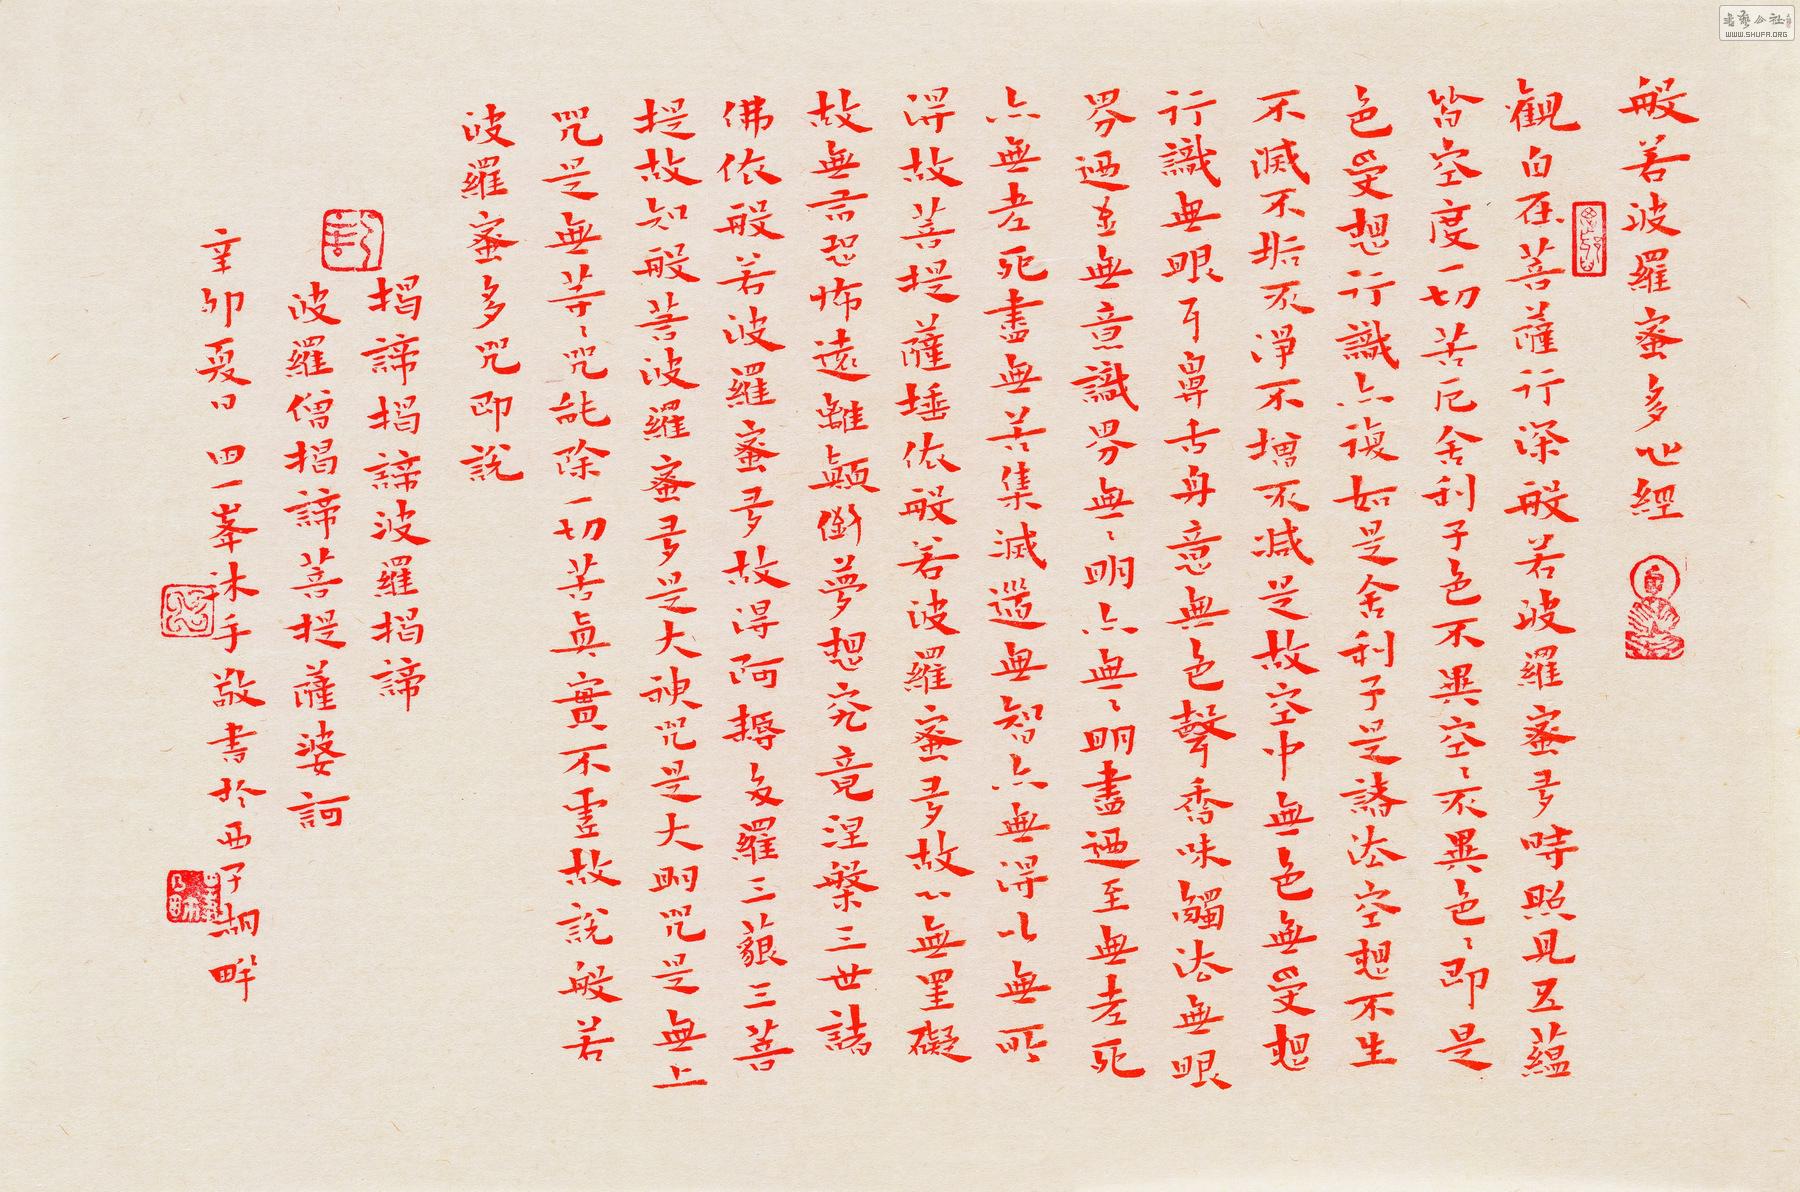 般若波羅蜜多心經
觀自在菩薩行深般若波羅蜜多時照見五蘊
皆空度一切苦厄舍利子色不異空〻不異色〻即是
色受想行識亦復如是舍利子是諸法空想不生
不滅不垢不淨不增不減是故空中無色無受想
行識無眼耳鼻舌身意無色聲香味觸法無眼
界迺至無意識界無〻明亦無〻明盡迺至無老死
亦無老死盡無苦集滅道無智亦無得以無所
得故菩提薩埵依般若波羅蜜多故心無罣礙
故無有恐怖遠離顛倒夢想究竟涅槃三世諸
佛依般若波羅蜜多故得阿耨多羅三藐三菩
提故知般若波羅蜜多是大神咒是大明咒是無上
咒是無等〻咒能除一切苦真實不虛故說般若
波羅蜜多咒即說
揭諦揭諦波羅揭諦
波羅僧揭諦菩提薩婆訶
辛卯夏日四一峯沐手敬書於西子湖畔
書藝公社
WWW.SHUFA.ORG